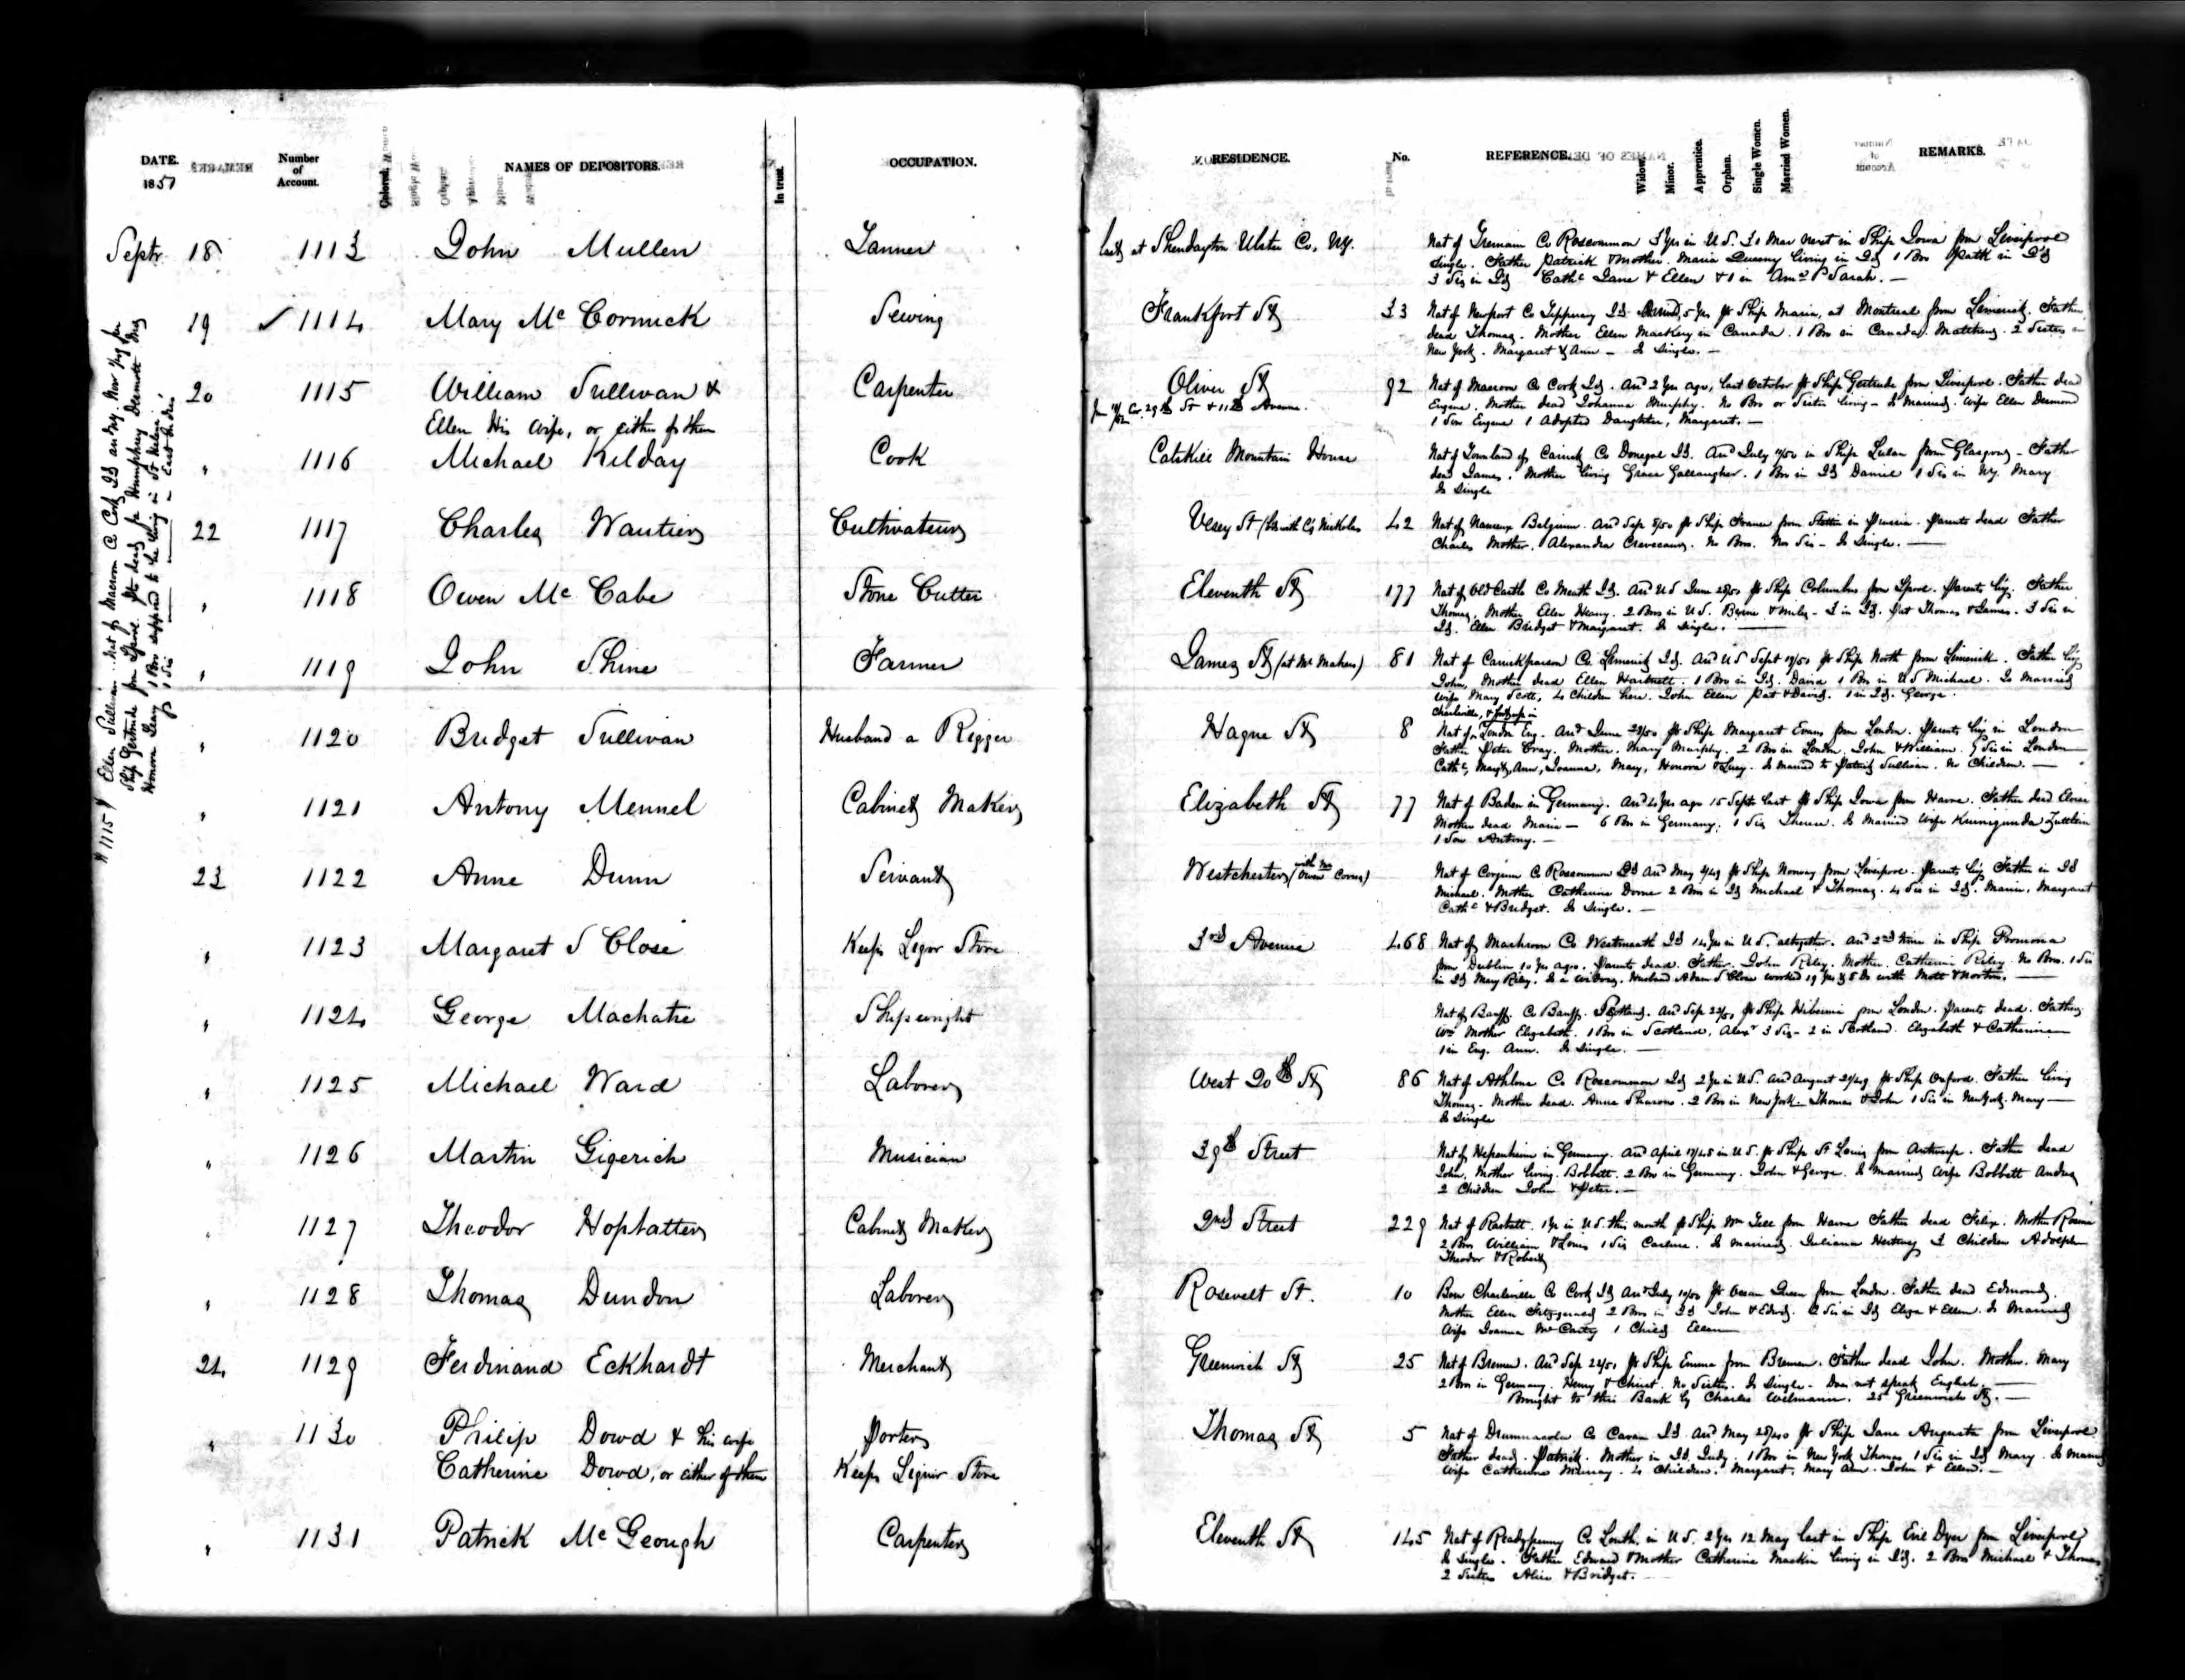 DATE.
1851
Number
of
Account.
Colored,
NAMES OF DEPOSITORS.
In trust.
OCCUPATION.
RESIDENCE.
No.
REFERENCE.
Widow.
Minor.
Apprentice.
Orphan.
Single Women.
Married Women.
REMARKS.
Septr 18 1113 John Mullen Tanner last at Shendayton Ulster Co. NY.
Nat of Co Roscommon 3 Yrs in U S. 30 Mar next in Ship Iowa from Liverpool
Single. Father Patrick & Mother Maria Queeny living in Id 1 Bro Patk in Id
3 Sis in Id Cathe Jane & Ellen & 1 in Ama Sarah. —
19 ✓ 1114 Mary Mc Cormick Sewing Frankfort St 33
Nat of Newport Co Tipperary Id 5 Yrs pr Ship Maria, at Montreal from Limerick. Father
dead Thomas. Mother Ellen Mackey in Canada. 1 Bro in Canada. Matthew. 2 Sisters in
New York. Margaret & Ann — Is Single. —
20 1115 William Sullivan & Carpenter Oliver St 92
Ellen His Wife, or either of them
Cor. 29th St & 11th Avenue.
Nat of Macroom Co Cork Id. Arrd 2 Yrs ago, last October pr Ship Gertrude from Liverpool. Father dead
Eugene. Mother dead Johanna Murphy. No Bro or Sister living — Is Married. Wife Ellen Desmond
1 Son Eugene 1 Adopted Daughter, Margaret. —
" 1116 Michael Kilday Cook Catskill Mountain House
Nat of Townland of Carrick Co Donegal Id. Arrd July /50 in Ship from Glasgow — Father
dead James. Mother living Grace Gallaugher. 1 Bro in Id Daniel 1 Sis in NY. Mary
Is Single
22 1117 Charles Wautier Cultivateur Vesey St 42
Nat of Namur Belgium. Arrd Sep /50 pr Ship from Stettin in Prussia. Parents dead Father
Charles Mother, Alexandra. No Bros. No Sis — Is Single. —
" 1118 Owen Mc Cabe Stone Cutter Eleventh St 177
Nat of Old Castle Co Meath Id. Arrd U S June 28/50 pr Ship Columbus from Lpool. Parents livg. Father
Thomas, Mother Ellen Henry. 2 Bros in U S. Byrne & Miles — 3 in Id. Pat Thomas & James. 3 Sis in
Id. Ellen Bridget & Margaret. Is Single. —
" 1119 John Shine Farmer James St (at Mc Mahon) 81
Nat of Co Limerick Id. Arrd U S Sept /50 pr Ship North from Limerick. Father livg
John, Mother dead Ellen Hartnett. 1 Bro in Id. David 1 Bro in U S Michael. Is Married
Wife Mary Scott, 4 Children here. John Ellen Pat & David. 1 in Id. George.
" 1120 Bridget Sullivan Husband a Rigger Hague St 8
Nat of London Eng. Arrd June 22/50 pr Ship Margaret Evans from London. Parents livg in London
Father Peter Cray. Mother. Mary Murphy. 2 Bros in London, John & William. Sis in London
Cathe, Margt, Ann, Joanna, Mary, Honora & Lucy. Is married to Patrick Sullivan. No Children. —
" 1121 Antony Mennel Cabinet Maker Elizabeth St 77
Nat of Baden in Germany. Arrd 4 Yrs ago 15 Septr last pr Ship Iowa from Havre. Father dead
Mother dead Maria — 6 Bro in Germany; 1 Sis Therese. Is Married Wife Kunigunda
1 Son Antony. —
23 1122 Anne Dunn Servant Westchester
Nat of Co Roscommon Id Arrd May /49 pr Ship Norway from Liverpool. Parents livg Father in Id
Michael. Mother Catherine Dorne 2 Bros in Id Michael & Thomas. 4 Sis in Id. Maria, Margaret
Cathe & Bridget. Is Single. —
" 1123 Margaret S Close Keeps Liqor Store 3rd Avenue 468
Nat of Co Westmeath Id 14 Yrs in U S. altogether. Arrd 2nd time in Ship Pomona
from Dublin 10 Yrs ago. Parents dead. Father. John Riley. Mother. Catherine Riley. No Bros. 1 Sis
in Id Mary Riley. Is a widow. Husband Adam S Close worked 19 Yrs with Mott & Norton. —
" 1124 George Machatie Shipwright
Nat of Banff. Co Banff. Scotland. Arrd Sep 22/51 pr Ship Hibernia from London. Parents dead. Father
Wm Mother Elizabeth. 1 Bro in Scotland, Alexr 3 Sis — 2 in Scotland. Elizabeth & Catherine
1 in Eng. Ann. Is Single. —
" 1125 Michael Ward Laborer West 20th St 86
Nat of Athlone Co Roscommon Id 2 Yrs in U S. Arrd August 21/49 pr Ship Oxford. Father living
Thomas. Mother dead. Anna Sharon. 2 Bro in New York. Thomas & John 1 Sis in New York. Mary —
Is Single
" 1126 Martin Gigerich Musician 39th Street
Nat of Hepenheim in Germany. Arrd April /45 in U S. pr Ship St Louis from Antwerp. Father dead
John, Mother living. Bobbett. 2 Bro in Germany. John & George. Is married Wife Bobbett
2 Children John & Peter. —
" 1127 Theodor Hopfatter Cabinet Maker 2nd Street 229
Nat of Rastatt. 1 Yr in U S. this month pr Ship Wm Tell from Havre Father dead Felix. Mother Rosina
2 Bro William & Louis 1 Sis Caroline. Is married. Juliana 3 Children Adolph
Theodor & Robert
" 1128 Thomas Dundon Laborer Rosevelt St. 10
Born Charleville Co Cork Id Arrd July 10/50 pr Ocean Queen from London. Father dead Edmond.
Mother Ellen Fitzgerald 2 Bros in Id John & Edwd. 2 Sis in Id Eliza & Ellen. Is Married
Wife Joanna Mc Carty 1 Child Ellen
24 1129 Ferdinand Eckhardt Merchant Greenwich St 25
Nat of Bremen. Arrd Sep 22/51 pr Ship Emma from Bremen. Father dead John. Mother. Mary
2 Bro in Germany. Henry & Christ. No Sisters. Is Single — Does not speak English. —
Brought to this Bank by Charles Wilmann. 25 Greenwich St. —
" 1130 Philip Dowd & his wife Porter Thomas St 5
Catherine Dowd, or either of them Keeps Liquor Store
Nat of Co Cavan Id. Arrd May /40 pr Ship Jane Augusta from Liverpool
Father dead. Patrick. Mother in Id. Judy. 1 Bro in New York Thomas 1 Sis in Id Mary. Is Married
Wife Catherine Murray. 4 Children. Margaret, Mary Ann. John & Ellen. —
" 1131 Patrick Mc Geough Carpenter Eleventh St 145
Nat of Readypenny Co Louth. in U S. 2 Yrs 12 May last in Ship from Liverpool
Is Single. Father Edward & Mother Catherine Mackin living in Id. 2 Bro Michael & Thomas
2 Sisters Alice & Bridget.
# 1115 Ellen Sullivan Nat of Macroom Co Cork Id
Ship Gertrude from Lpool. Prts dead Humphrey Desmond
Honora Leary 1 Bro supposed to be living in St Helena
1 Sis — East Indies